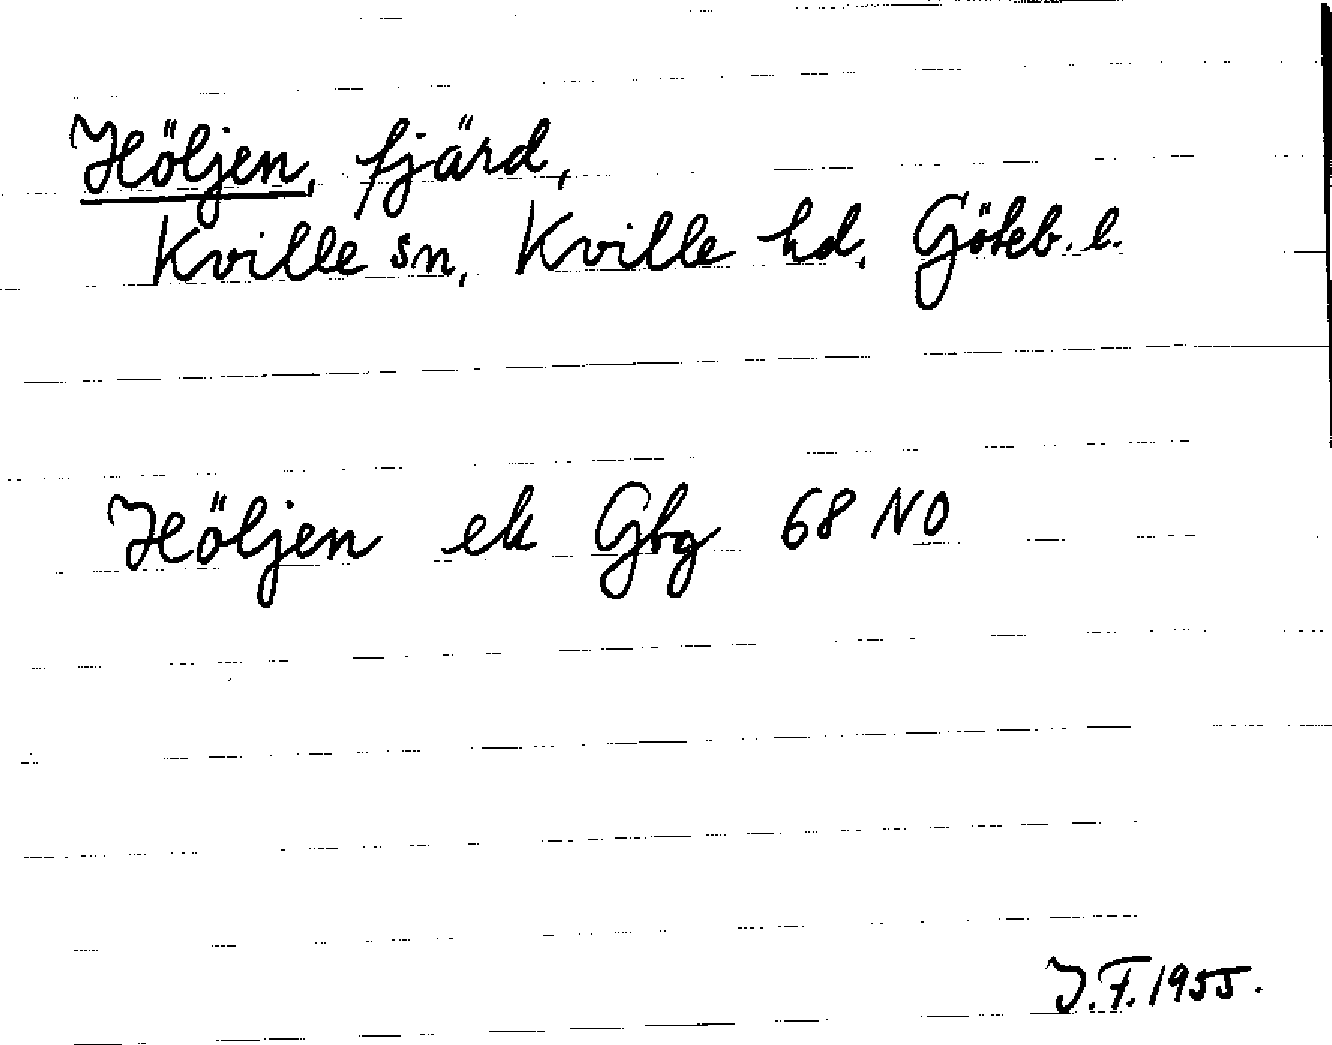 Höljen, fjärd,
Kville sn, Kville hd, Göteb. l.
Höljen ek Gbg 68 NO
J.F. 1955.